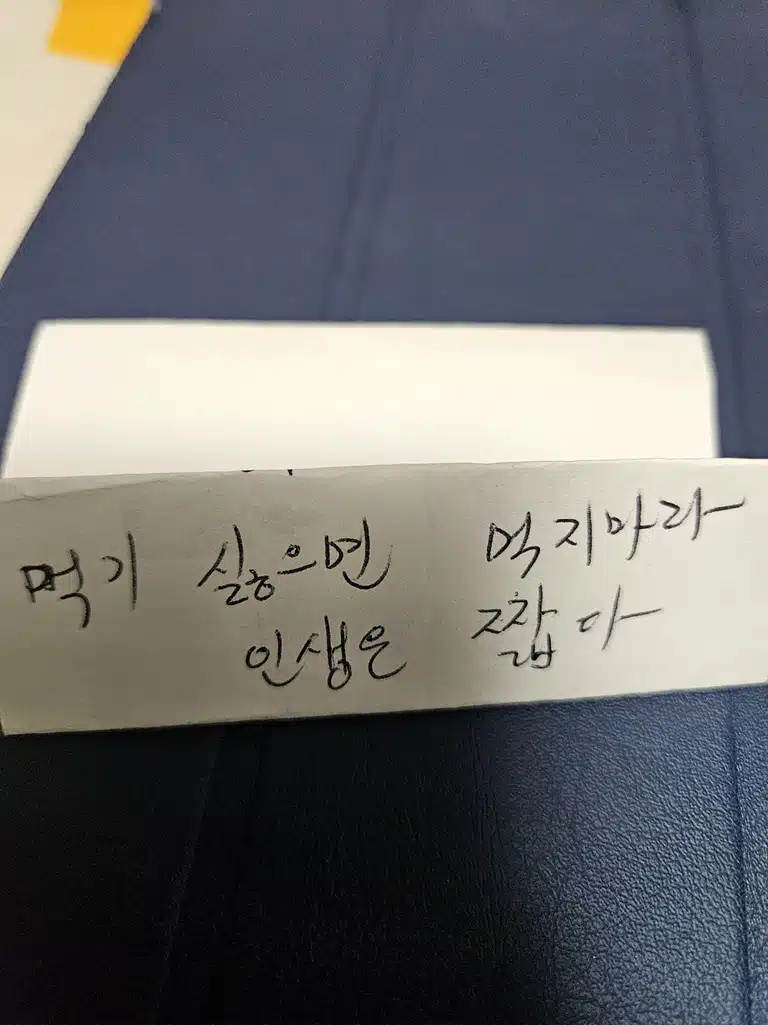 먹기 싫으면 먹지마라
인생은 짧다